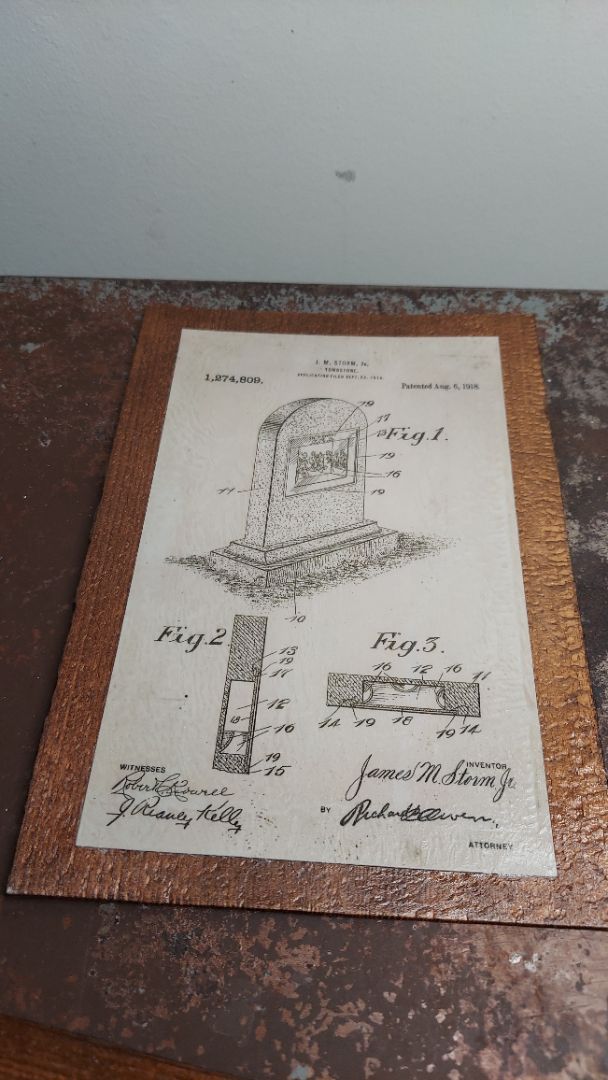 J. M. STORM, Jr.
TOMBSTONE.
APPLICATION FILED SEPT.
1,274,809.
Patented Aug. 6, 1918.
19
17
13
Fig.1.
19
16
19
11
10
Fig.2
13
19
17
12
18
16
19
15
Fig.3.
16 12 16 11
14 19 18 19 14
WITNESSES
INVENTOR
James M. Storm, Jr.
J. Kelly
BY Richard Owen,
ATTORNEY